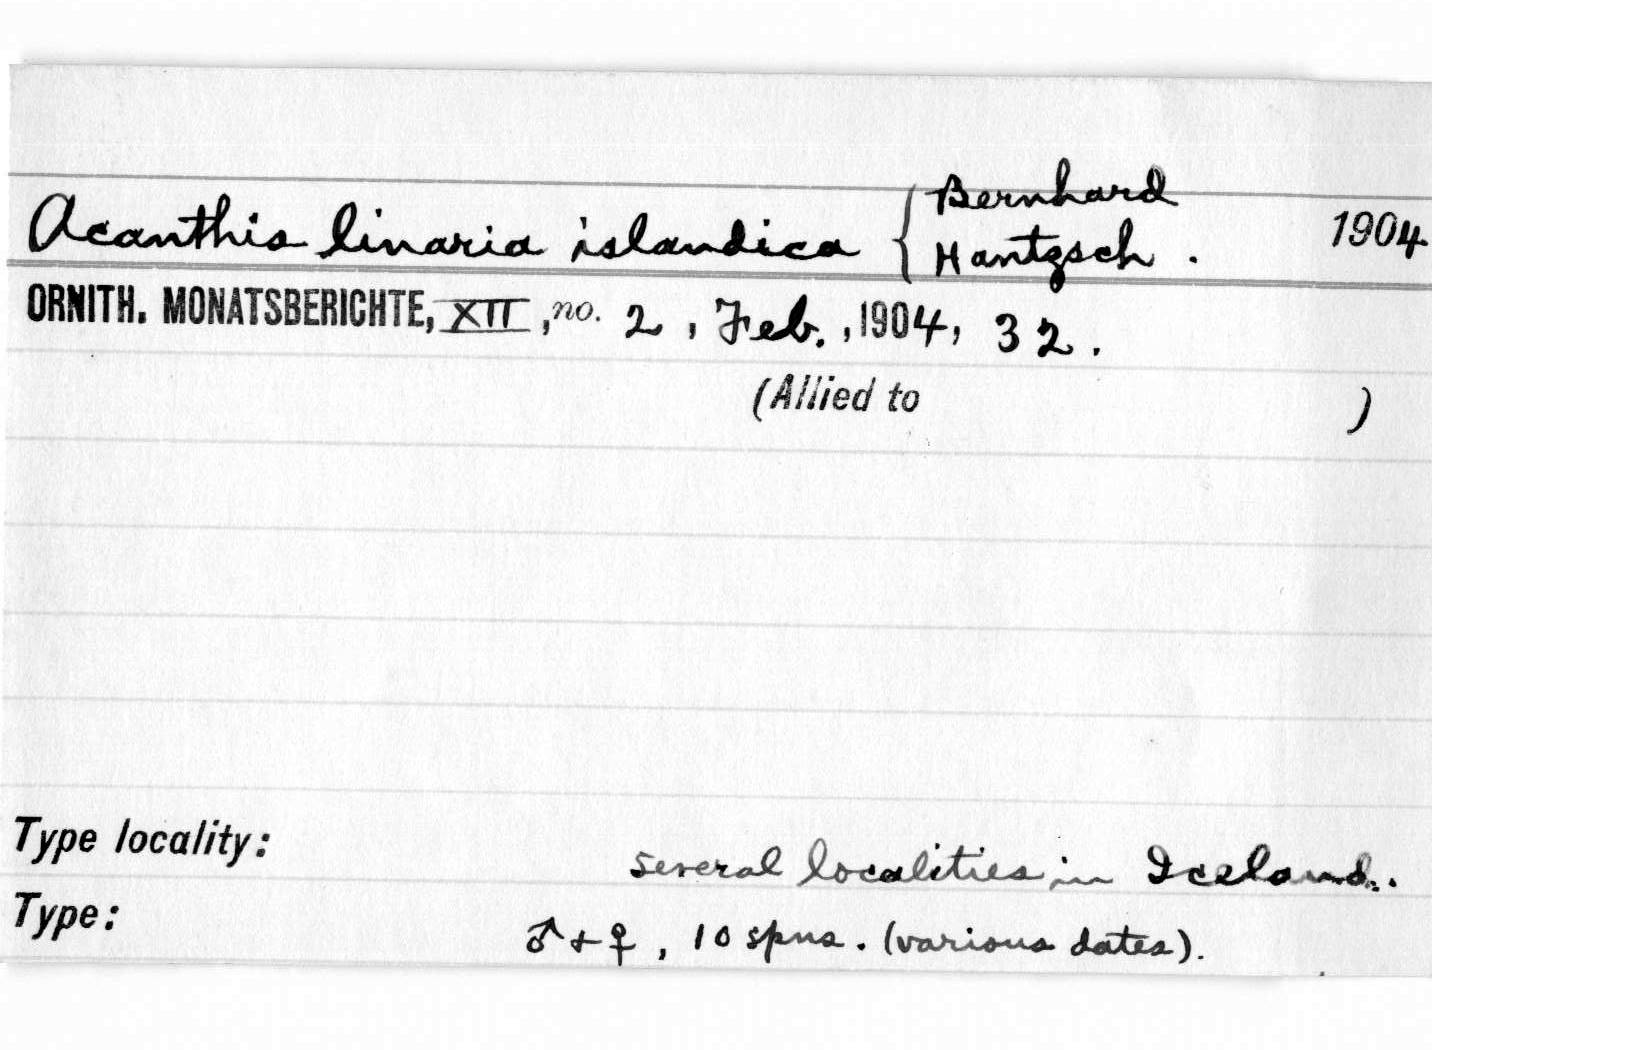 Acanthis linaria islandica { Bernhard Hantzsch . 1904
ORNITH. MONATSBERICHTE, XII, no. 2, Feb., 1904, 32.
(Allied to )
Type locality: several localities in Iceland.
Type: ♂ + ♀, 10 spns. (various dates).